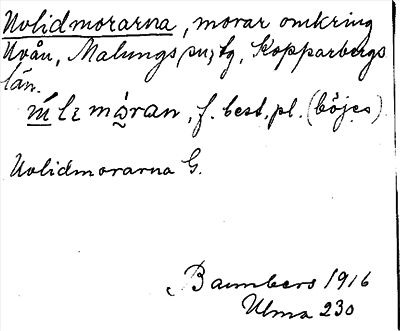 Uvlidmorarna, morar omkring
Uvån, Malungs sn, tg, Kopparbergs
län.
f. best. pl. (böjes)
Uvlidmorarna G.
1916
Ulma 230